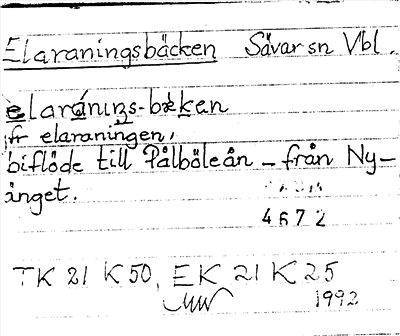 Elaraningsbäcken Sävar sn Vbl.
elaranıŋs-bɛken
fr elaraningen,
biflöde till Pålböleån – från Ny-
änget.
4672
TK 21 K 50, EK 21 K 25
1992